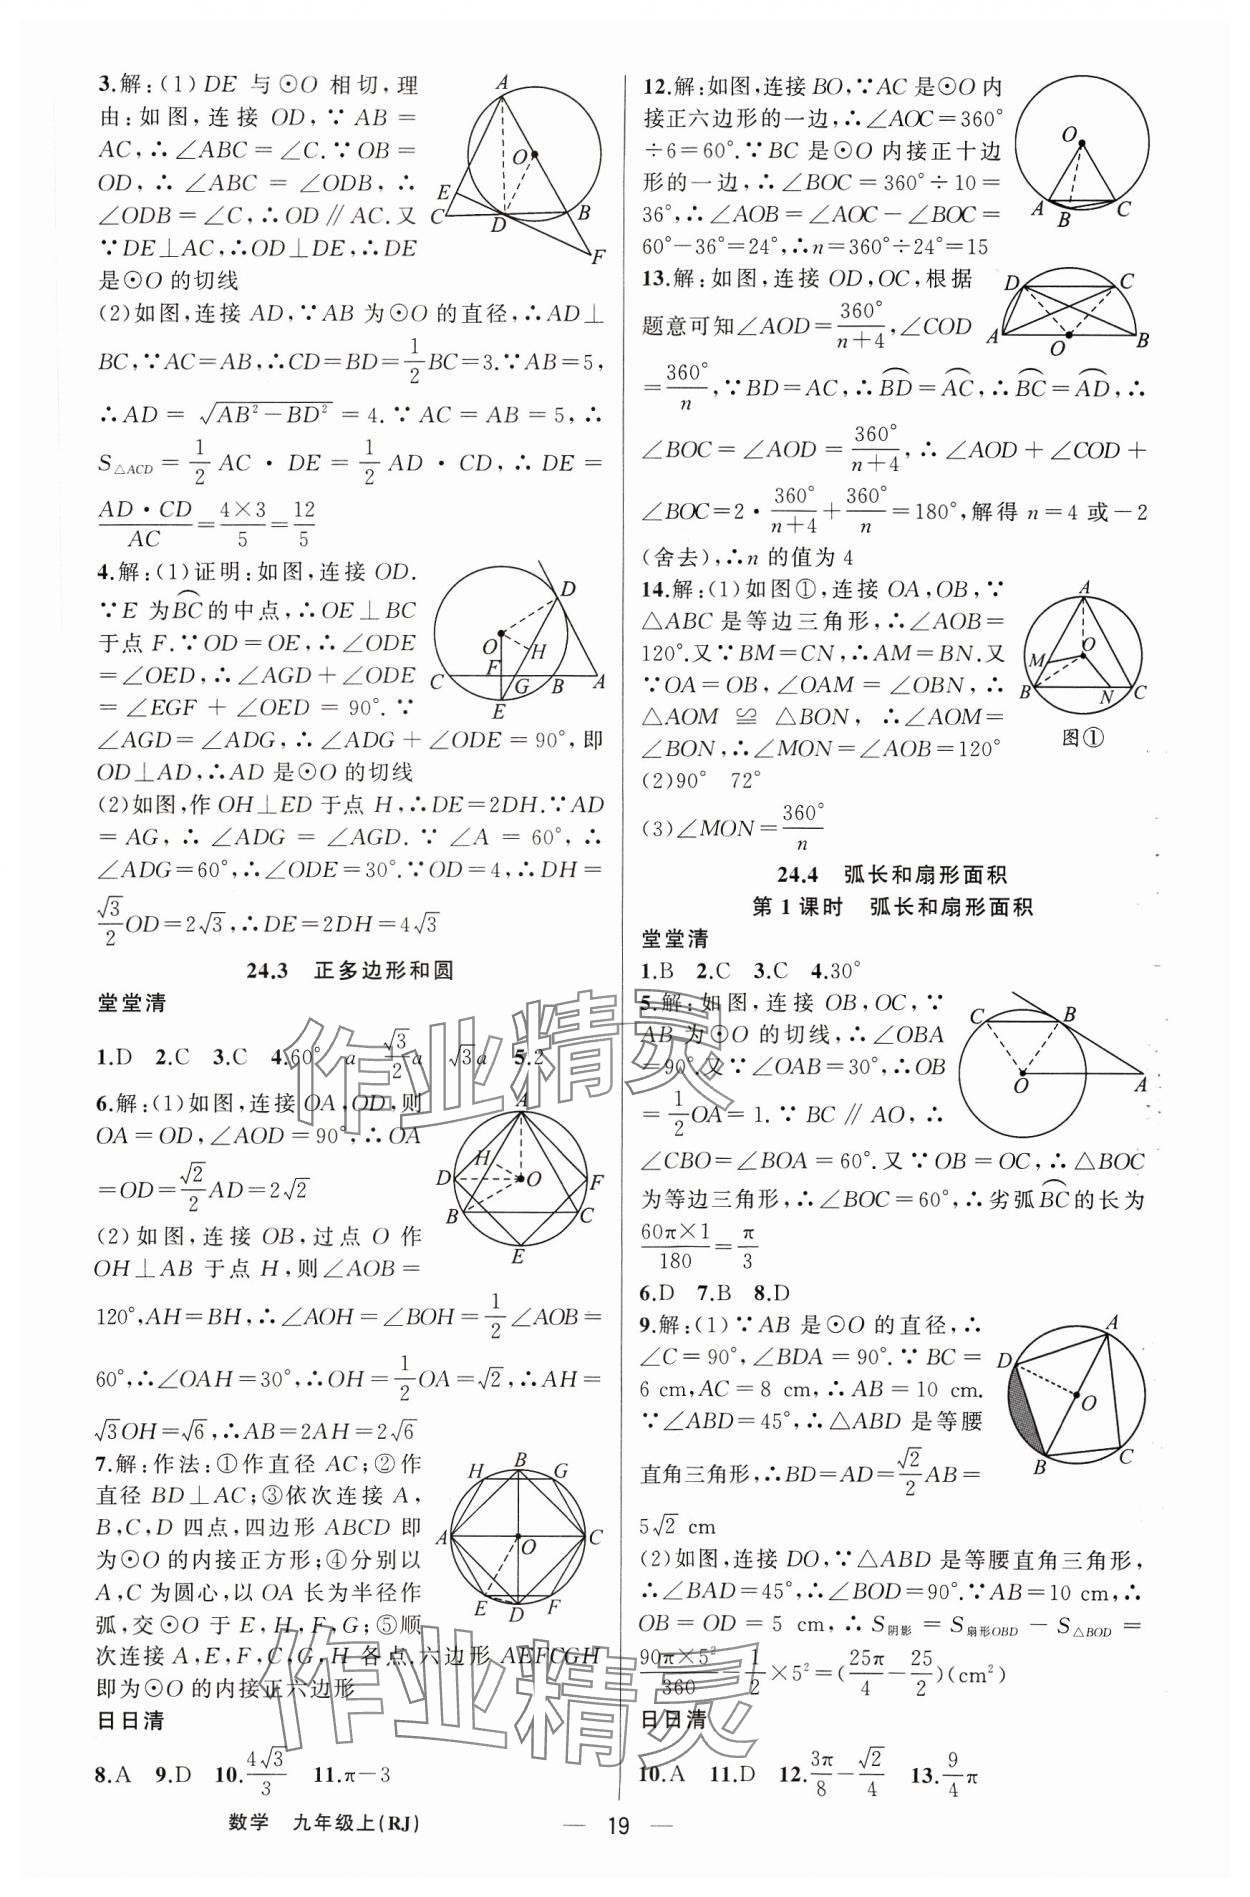 3.解:(1)DE 与⊙O 相切,理
由:如图,连接 OD,∵AB=
AC,∴∠ABC=∠C.∵OB=
OD,∴∠ABC=∠ODB,∴
∠ODB=∠C,∴OD∥AC.又
∵DE⊥AC,∴OD⊥DE,∴DE
是⊙O 的切线
(2)如图,连接 AD,∵AB 为⊙O 的直径,∴AD⊥
BC,∵AC=AB,∴CD=BD=1/2BC=3.∵AB=5,
∴AD=√(AB²-BD²)=4.∵AC=AB=5,∴
S△ACD=1/2AC·DE=1/2AD·CD,∴DE=
AD·CD/AC=4×3/5=12/5
4.解:(1)证明:如图,连接 OD.
∵E 为BC⌒的中点,∴OE⊥BC
于点 F.∵OD=OE,∴∠ODE
=∠OED,∴∠AGD+∠ODE
=∠EGF+∠OED=90°.∵
∠AGD=∠ADG,∴∠ADG+∠ODE=90°,即
OD⊥AD,∴AD 是⊙O 的切线
(2)如图,作 OH⊥ED 于点 H,∴DE=2DH.∵AD
=AG,∴∠ADG=∠AGD.∵∠A=60°,∴
∠ADG=60°,∴∠ODE=30°.∵OD=4,∴DH=
√3/2OD=2√3,∴DE=2DH=4√3
24.3 正多边形和圆
堂堂清
1.D 2.C 3.C 4.60° a √3/2a √3a 5.2
6.解:(1)如图,连接 OA,OD,则
OA=OD,∠AOD=90°,∴OA
=OD=√2/2AD=2√2
(2)如图,连接 OB,过点 O 作
OH⊥AB 于点 H,则∠AOB=
120°,AH=BH,∴∠AOH=∠BOH=1/2∠AOB=
60°,∴∠OAH=30°,∴OH=1/2OA=√2,∴AH=
√3OH=√6,∴AB=2AH=2√6
7.解:作法:①作直径 AC;②作
直径 BD⊥AC;③依次连接 A,
B,C,D 四点,四边形 ABCD 即
为⊙O 的内接正方形;④分别以
A,C 为圆心,以 OA 长为半径作
弧,交⊙O 于 E,H,F,G;⑤顺
次连接 A,E,F,C,G,H 各点,六边形 AEFCGH
即为⊙O 的内接正六边形
日日清
8.A 9.D 10.4√3/3 11.π-3
12.解:如图,连接 BO,∵AC 是⊙O 内
接正六边形的一边,∴∠AOC=360°
÷6=60°.∵BC 是⊙O 内接正十边
形的一边,∴∠BOC=360°÷10=
36°,∴∠AOB=∠AOC-∠BOC=
60°-36°=24°,∴n=360°÷24°=15
13.解:如图,连接 OD,OC,根据
题意可知∠AOD=360°/(n+4),∠COD
=360°/n,∵BD=AC,∴BD⌒=AC⌒,∴BC⌒=AD⌒,∴
∠BOC=∠AOD=360°/(n+4),∴∠AOD+∠COD+
∠BOC=2·360°/(n+4)+360°/n=180°,解得 n=4 或-2
(舍去),∴n 的值为 4
14.解:(1)如图①,连接 OA,OB,∵
△ABC 是等边三角形,∴∠AOB=
120°.又∵BM=CN,∴AM=BN.又
∵OA=OB,∠OAM=∠OBN,∴
△AOM≌△BON,∴∠AOM=
∠BON,∴∠MON=∠AOB=120°
图①
(2)90° 72°
(3)∠MON=360°/n
24.4 弧长和扇形面积
第 1 课时 弧长和扇形面积
堂堂清
1.B 2.C 3.C 4.30°
5.解:如图,连接 OB,OC,∵
AB 为⊙O 的切线,∴∠OBA
=90°.又∵∠OAB=30°,∴OB
=1/2OA=1.∵BC∥AO,∴
∠CBO=∠BOA=60°.又∵OB=OC,∴△BOC
为等边三角形,∴∠BOC=60°,∴劣弧BC⌒的长为
60π×1/180=π/3
6.D 7.B 8.D
9.解:(1)∵AB 是⊙O 的直径,∴
∠C=90°,∠BDA=90°.∵BC=
6 cm,AC=8 cm,∴AB=10 cm.
∵∠ABD=45°,∴△ABD 是等腰
直角三角形,∴BD=AD=√2/2AB=
5√2 cm
(2)如图,连接 DO,∵△ABD 是等腰直角三角形,
∴∠BAD=45°,∴∠BOD=90°.∵AB=10 cm,∴
OB=OD=5 cm,∴S阴影=S扇形OBD-S△BOD=
90π×5²/360-1/2×5²=(25π/4-25/2)(cm²)
日日清
10.A 11.D 12.3π/8-√2/4 13.9/4π
数学 九年级上(RJ)
— 19 —
作业精灵
作业精灵